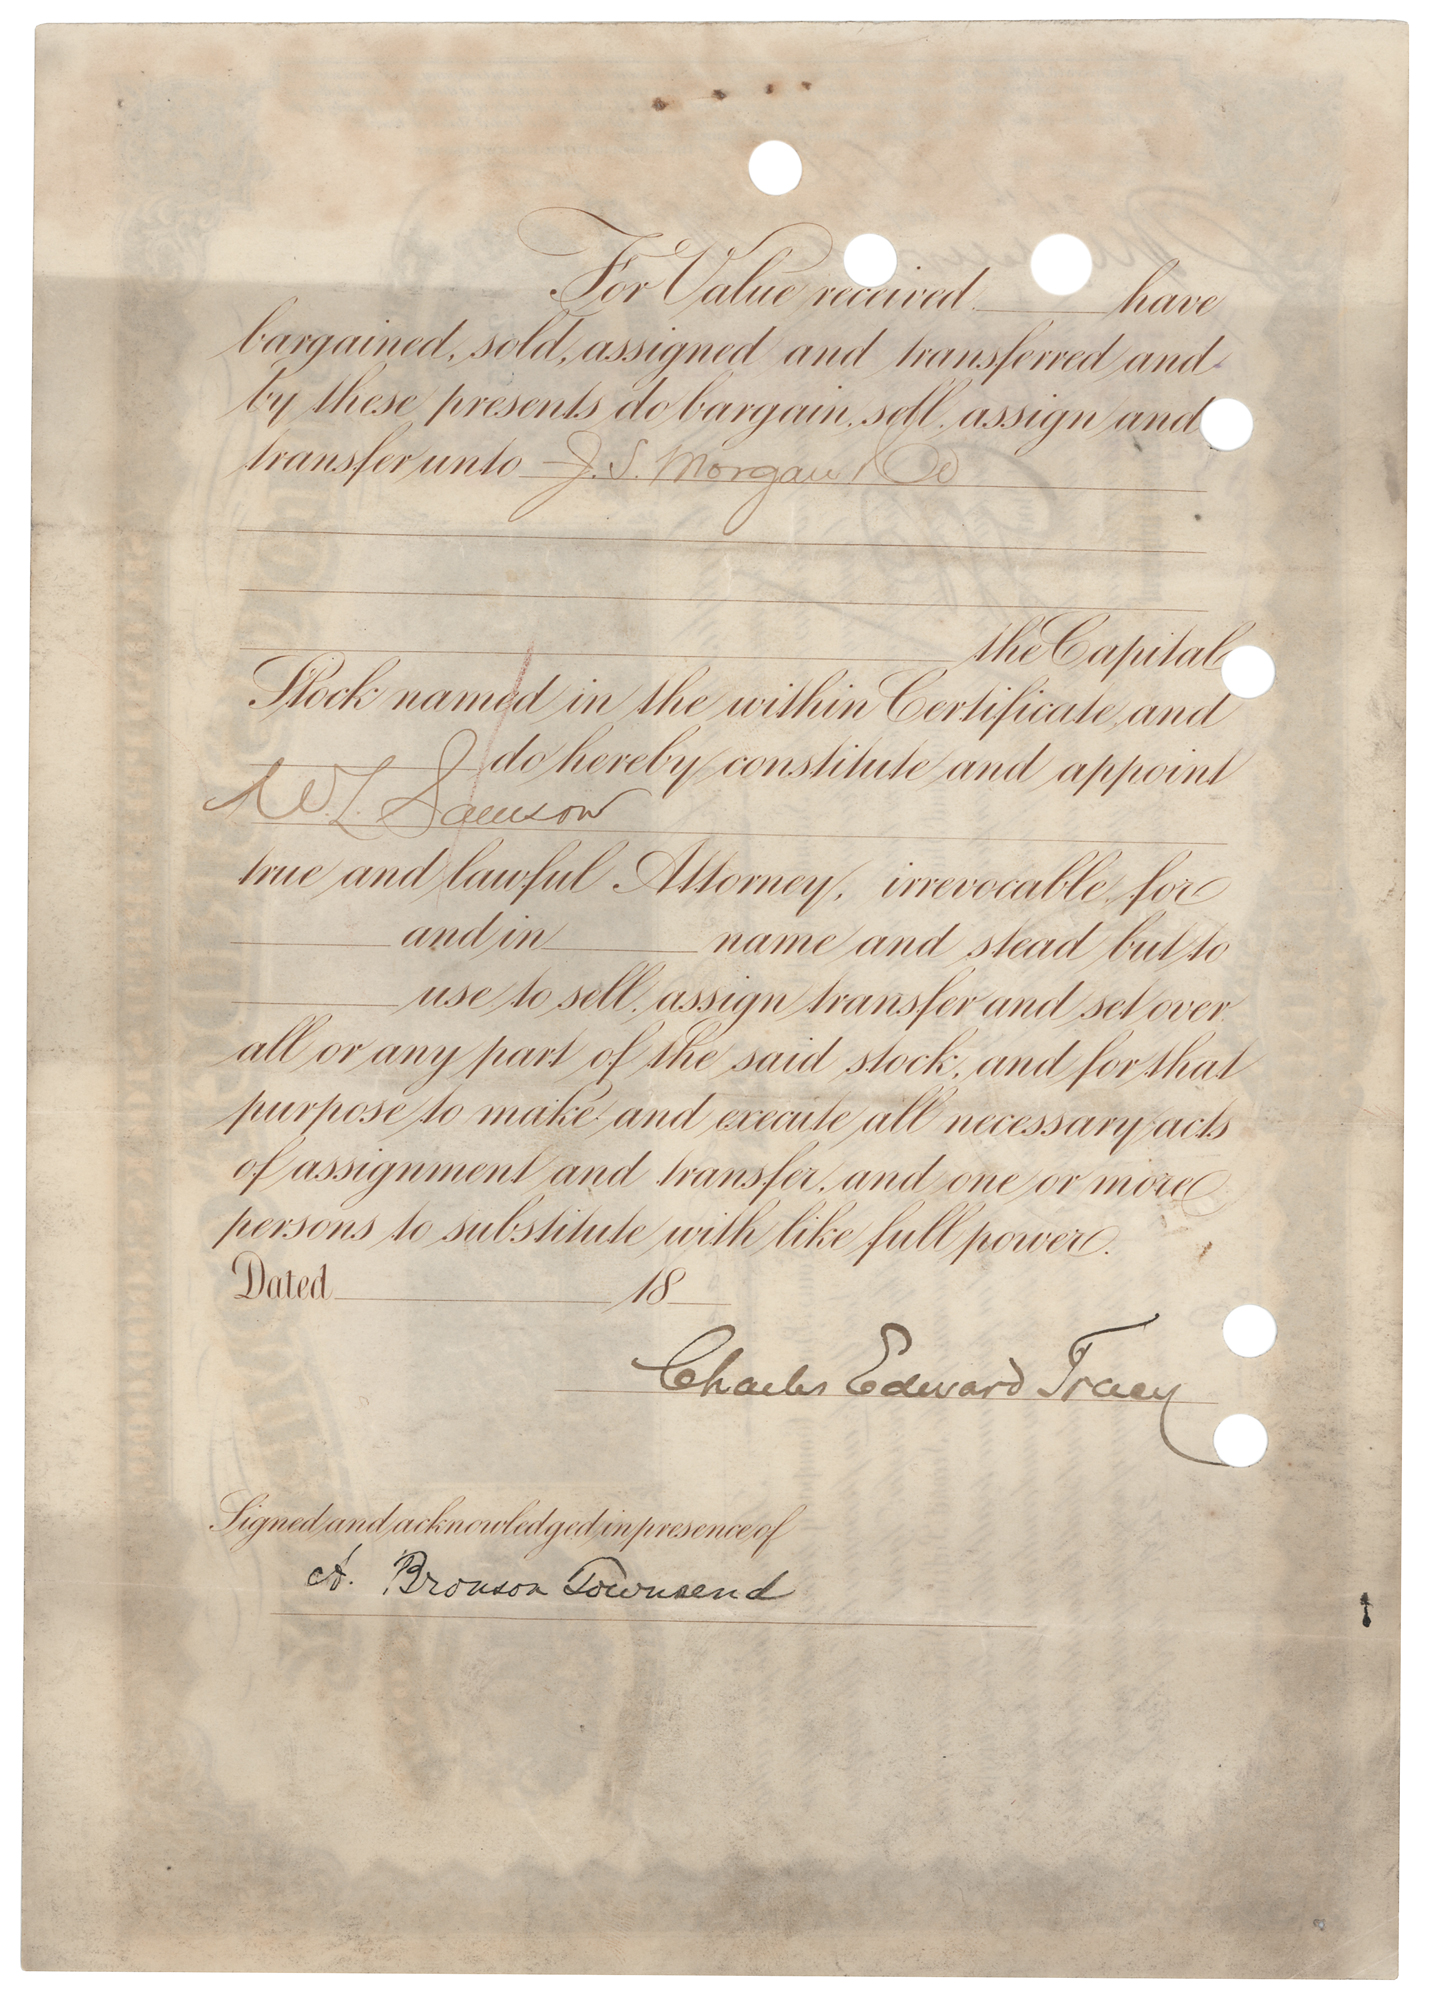 For Value received ______ have
bargained, sold, assigned and transferred and
by these presents do bargain, sell, assign and
transfer unto J. S. Morgan & Co
the Capital
Stock named in the within Certificate, and
______ do hereby constitute and appoint
W. L. Samson
true and lawful Attorney, irrevocable, for
______ and in ______ name and stead but to
______ use to sell, assign transfer and set over
all or any part of the said stock, and for that
purpose to make and execute all necessary acts
of assignment and transfer, and one or more
persons to substitute with like full power.
Dated ______ 18__
Charles Edward Tracy
Signed and acknowledged in presence of
A. Bronson Townsend